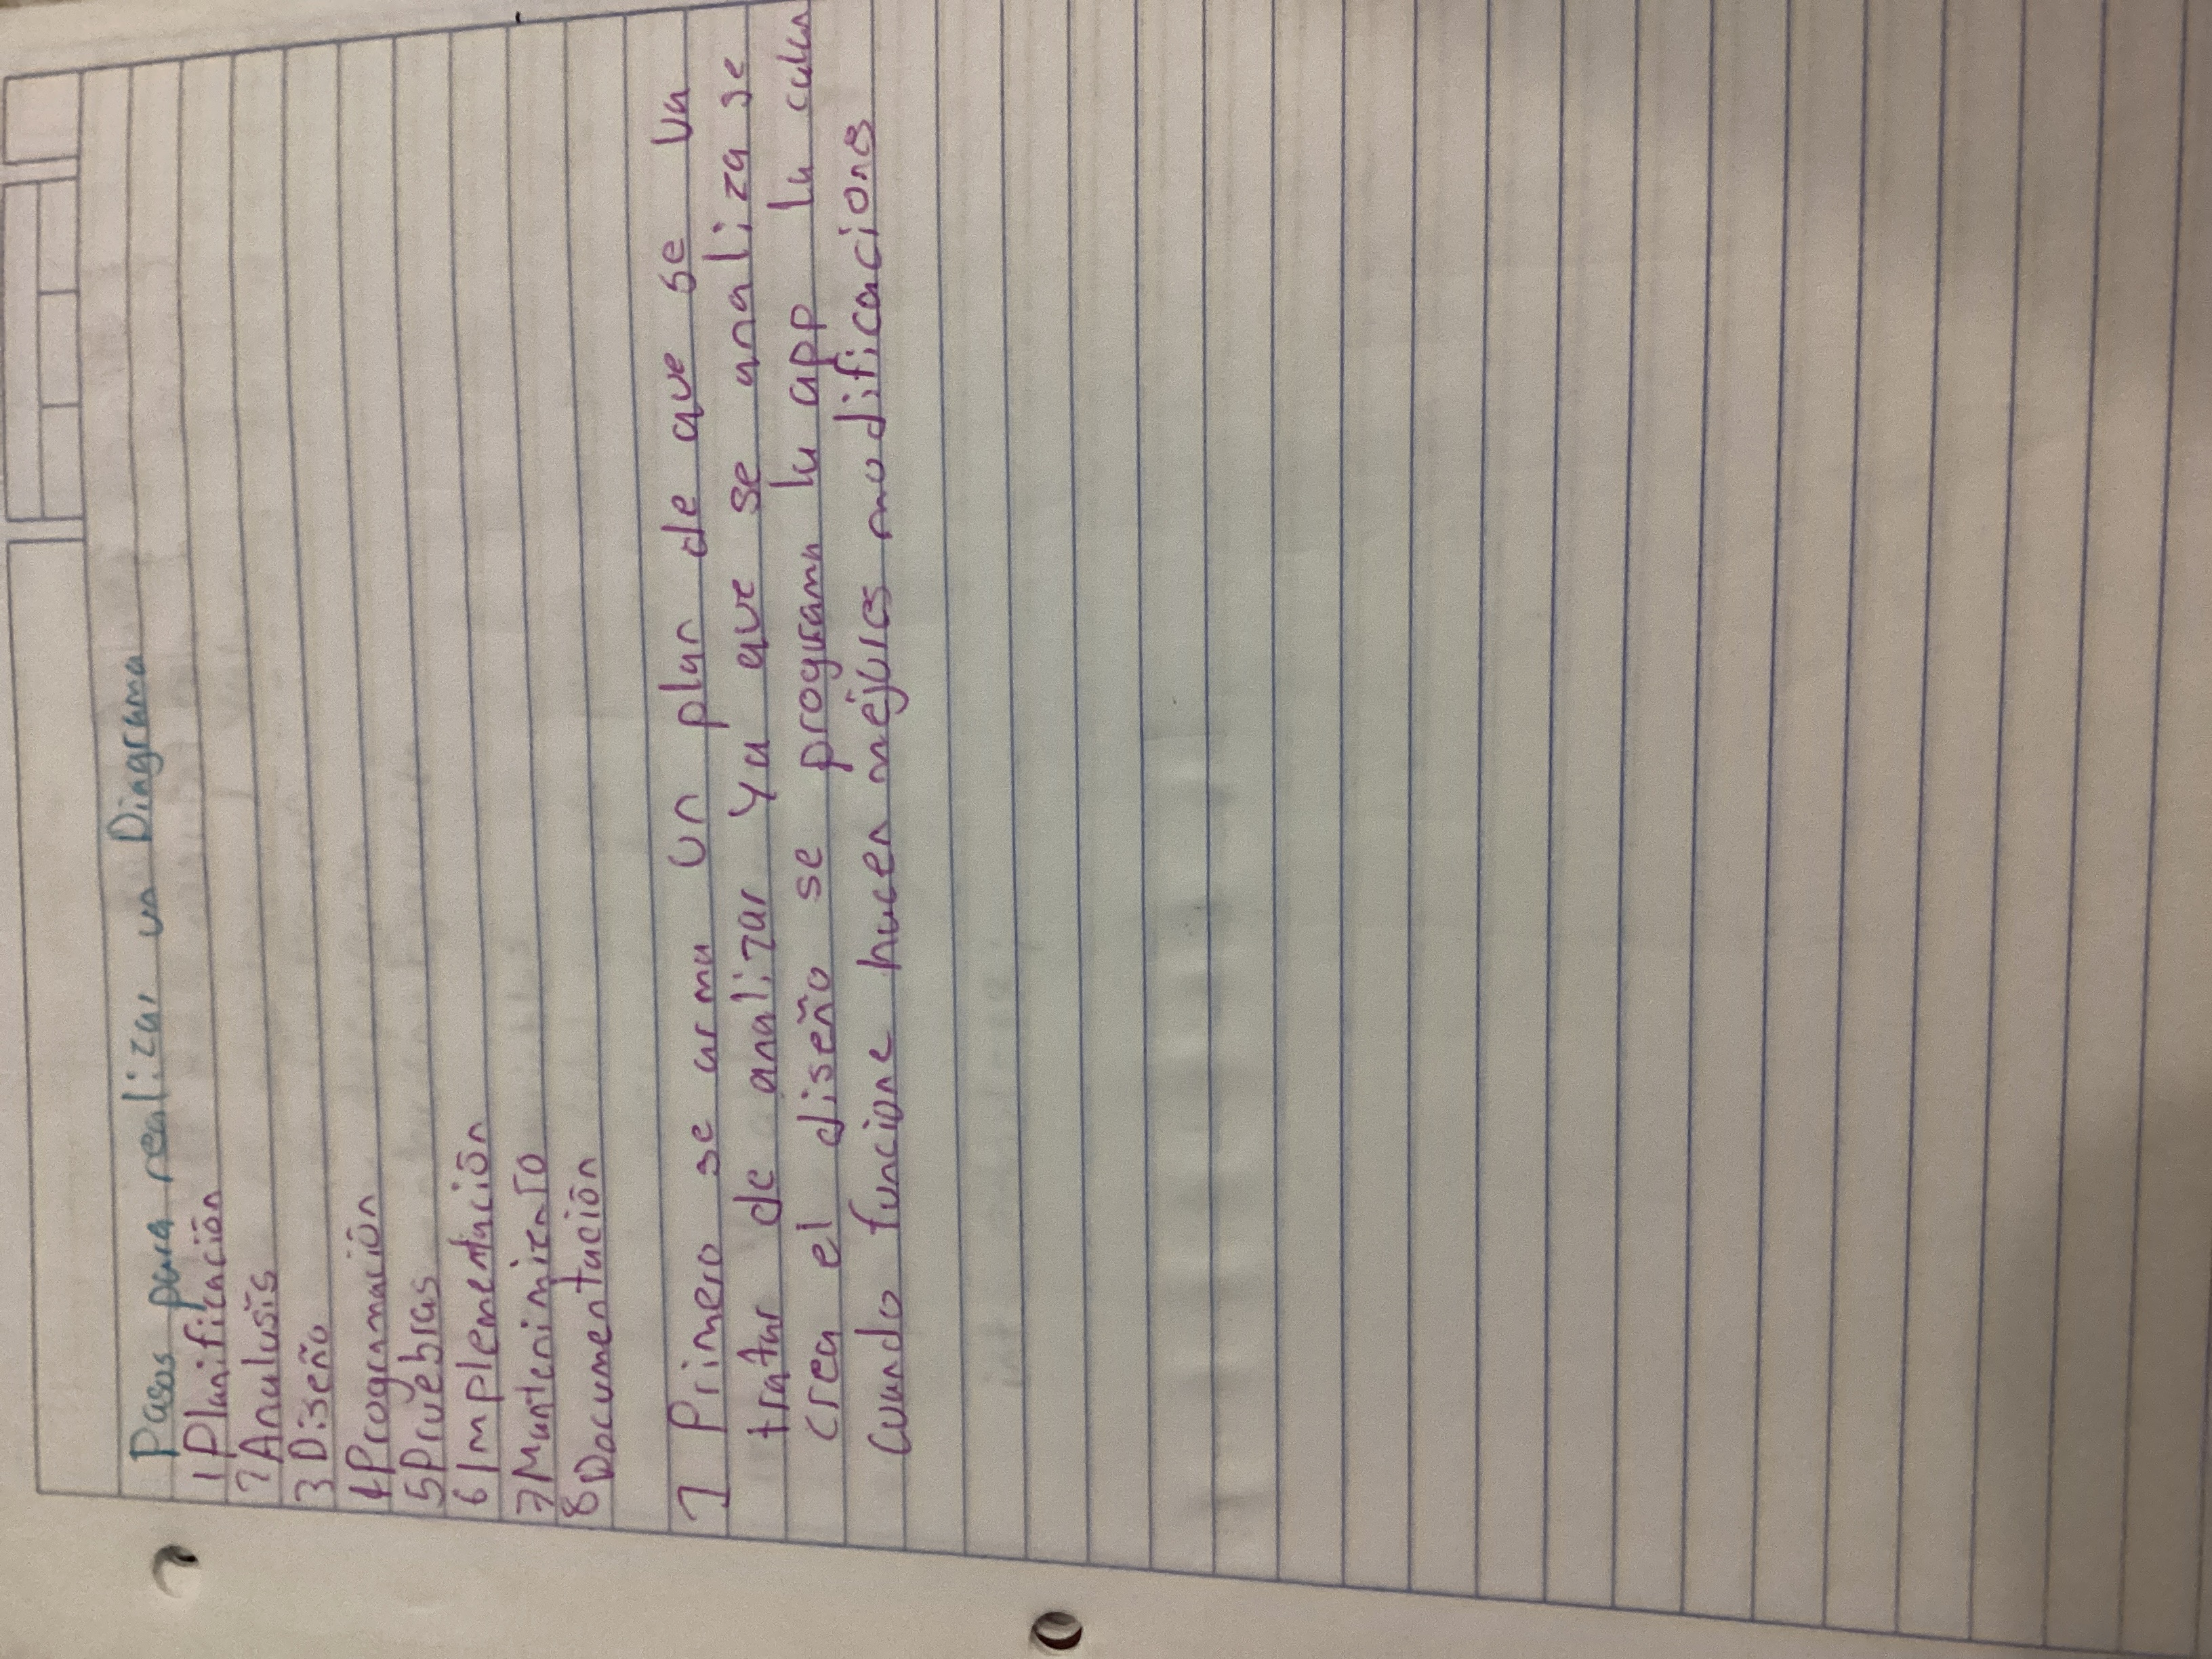 Pasos para realizar un Diagrama
1 Planificación
2 Analusis
3 Diseño
4 Programación
5 Pruebras
6 Implementación
7 Mantenimiento
8 Documentación
1 Primero se arma un plan de que se va
tratar de analizar Ya que se analiza se
crea el diseño se programa la app la
Cuando funcione hacen mejores modificacions